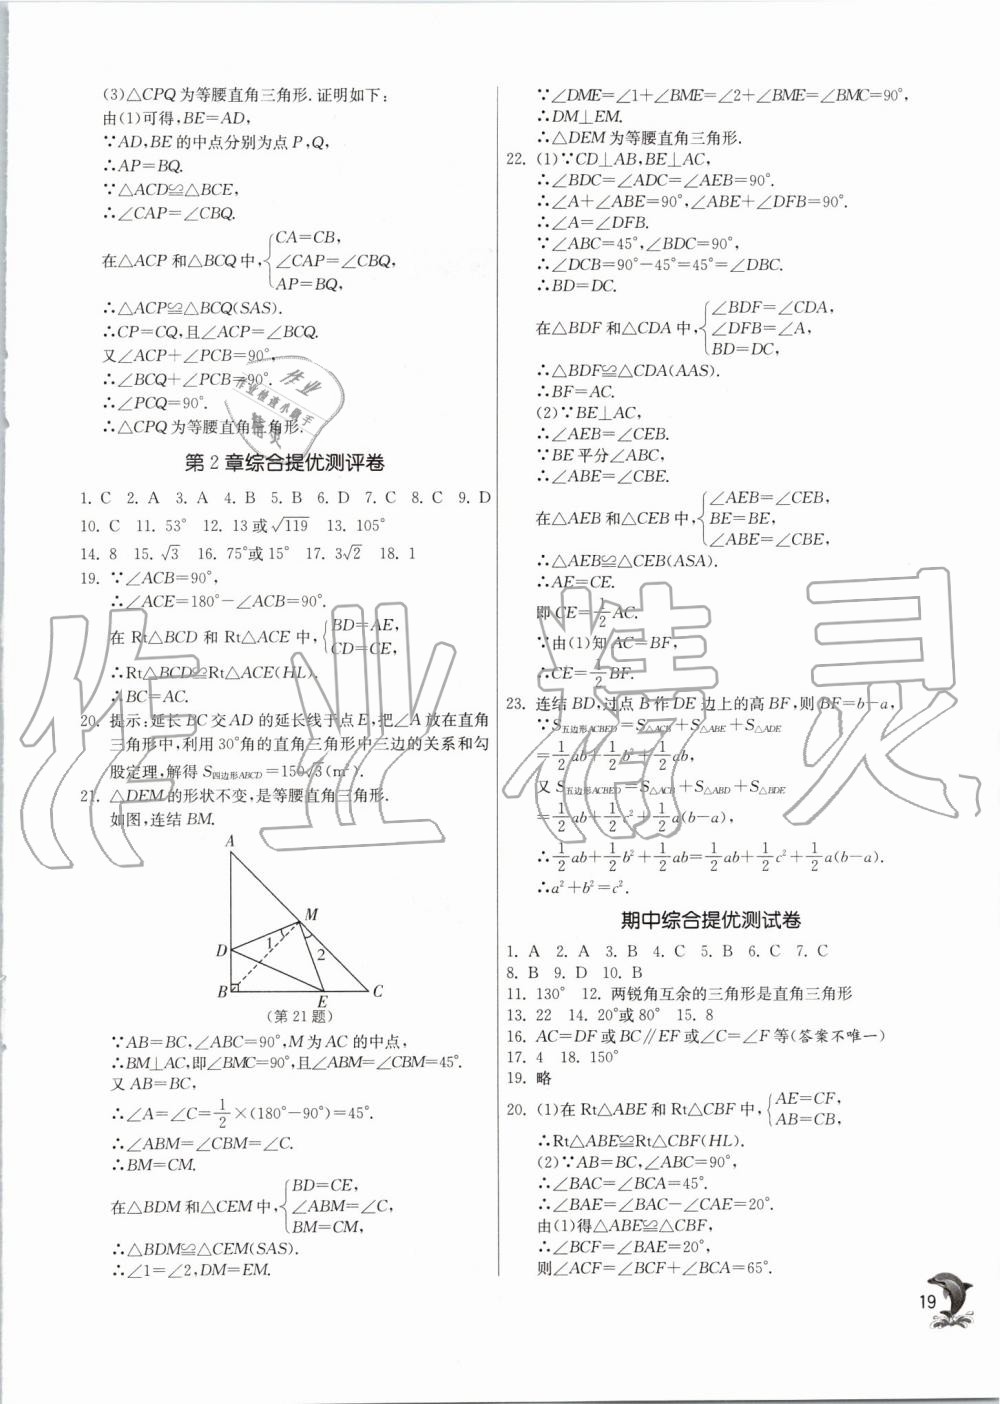 (3)△CPQ 为等腰直角三角形. 证明如下:
由(1)可得,BE=AD,
∵AD,BE 的中点分别为点 P,Q,
∴AP=BQ.
∵△ACD≌△BCE,
∴∠CAP=∠CBQ.
在△ACP 和△BCQ 中,{CA=CB,
∠CAP=∠CBQ,
AP=BQ,
∴△ACP≌△BCQ(SAS).
∴CP=CQ,且∠ACP=∠BCQ.
又∠ACP+∠PCB=90°,
∴∠BCQ+∠PCB=90°.
∴∠PCQ=90°.
∴△CPQ 为等腰直角三角形.
第 2 章综合提优测评卷
1. C 2. A 3. A 4. B 5. B 6. D 7. C 8. C 9. D
10. C 11. 53° 12. 13或√119 13. 105°
14. 8 15. √3 16. 75°或15° 17. 3√2 18. 1
19. ∵∠ACB=90°,
∴∠ACE=180°-∠ACB=90°.
在 Rt△BCD 和 Rt△ACE 中,{BD=AE,
CD=CE,
∴Rt△BCD≌Rt△ACE(HL).
∴BC=AC.
20. 提示:延长 BC 交 AD 的延长线于点 E,把∠A 放在直角
三角形中,利用 30°角的直角三角形中三边的关系和勾
股定理,解得 S四边形ABCD=150√3(m²).
21. △DEM 的形状不变,是等腰直角三角形.
如图,连结 BM.
A
M
1
2
D
B
E
C
(第 21 题)
∵AB=BC,∠ABC=90°,M 为 AC 的中点,
∴BM⊥AC,即∠BMC=90°,且∠ABM=∠CBM=45°.
又 AB=BC,
∴∠A=∠C=1/2×(180°-90°)=45°.
∴∠ABM=∠CBM=∠C.
∴BM=CM.
在△BDM 和△CEM 中,{BD=CE,
∠ABM=∠C,
BM=CM,
∴△BDM≌△CEM(SAS).
∴∠1=∠2,DM=EM.
∵∠DME=∠1+∠BME=∠2+∠BME=∠BMC=90°,
∴DM⊥EM.
∴△DEM 为等腰直角三角形.
22. (1)∵CD⊥AB,BE⊥AC,
∴∠BDC=∠ADC=∠AEB=90°.
∴∠A+∠ABE=90°,∠ABE+∠DFB=90°.
∴∠A=∠DFB.
∵∠ABC=45°,∠BDC=90°,
∴∠DCB=90°-45°=45°=∠DBC.
∴BD=DC.
在△BDF 和△CDA 中,{∠BDF=∠CDA,
∠DFB=∠A,
BD=DC,
∴△BDF≌△CDA(AAS).
∴BF=AC.
(2)∵BE⊥AC,
∴∠AEB=∠CEB.
∵BE 平分∠ABC,
∴∠ABE=∠CBE.
在△AEB 和△CEB 中,{∠AEB=∠CEB,
BE=BE,
∠ABE=∠CBE,
∴△AEB≌△CEB(ASA).
∴AE=CE.
即 CE=1/2 AC.
∵由(1)知 AC=BF,
∴CE=1/2 BF.
23. 连结 BD,过点 B 作 DE 边上的高 BF,则 BF=b-a,
∵S五边形ACBED=S△ACB+S△ABE+S△ADE
=1/2 ab+1/2 b²+1/2 ab,
又 S五边形ACBED=S△ACB+S△ABD+S△BDE
=1/2 ab+1/2 c²+1/2 a(b-a),
∴1/2 ab+1/2 b²+1/2 ab=1/2 ab+1/2 c²+1/2 a(b-a).
∴a²+b²=c².
期中综合提优测试卷
1. A 2. A 3. B 4. C 5. B 6. C 7. C
8. B 9. D 10. B
11. 130° 12. 两锐角互余的三角形是直角三角形
13. 22 14. 20°或 80° 15. 8
16. AC=DF 或 BC∥EF 或∠C=∠F 等(答案不唯一)
17. 4 18. 150°
19. 略
20. (1)在 Rt△ABE 和 Rt△CBF 中,{AE=CF,
AB=CB,
∴Rt△ABE≌Rt△CBF(HL).
(2)∵AB=BC,∠ABC=90°,
∴∠BAC=∠BCA=45°.
∴∠BAE=∠BAC-∠CAE=20°.
由(1)得△ABE≌△CBF,
∴∠BCF=∠BAE=20°,
则∠ACF=∠BCF+∠BCA=65°.
19
作业精灵